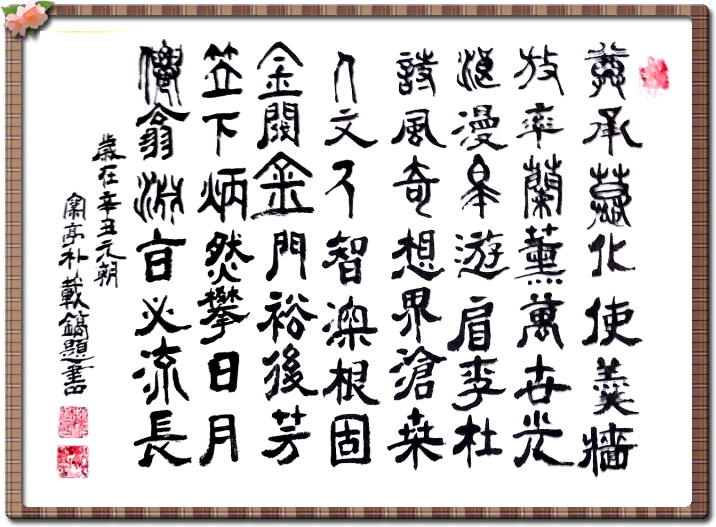 承化使羹牆
放率蘭薰萬世光
漫遊肩李杜
詩風奇想界滄桑
人文智深根固
金金門裕後芳
笠下炳然攀日月
翁淵言必流長
歲在辛丑元朝
蘭亭朴載鎬題書